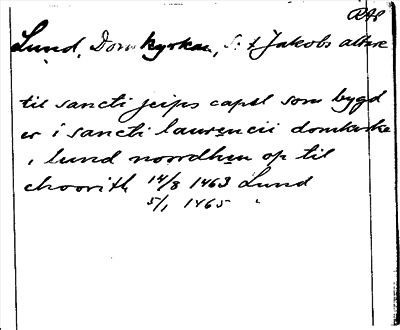 RAP
Lund, Domkyrkan, S:t Jakobs altare
til sancti jeips capel som bygd
er i sancti laurencii domkirke
i lund noordhen op til
choorith 14/8 1463 Lund
5/1 1465 "